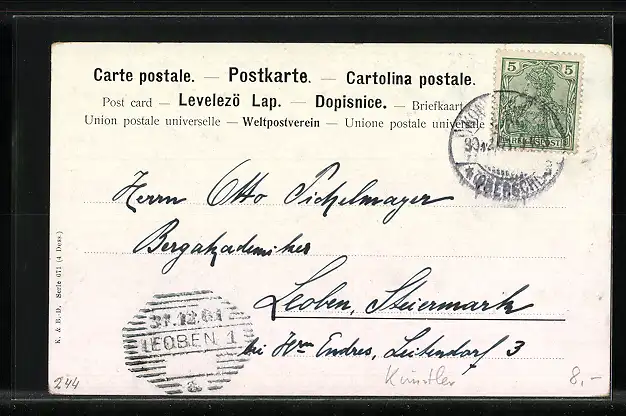 Carte postale. — Postkarte. — Cartolina postale.
Post card — Levelező Lap. — Dopisnice. — Briefkaart
Union postale universelle — Weltpostverein — Unione postale universale
5 5
REICHSPOST
(OBERSCHL.)
Herrn Otto Pichelmayer
Bergakademiker
Leoben, Steiermark
bei Hrn Endres, Leitendorf 3
31.12.01
LEOBEN 1
a
K. & B.-D. Serie 671 (4 Dess.)
244
Künstler
8,-